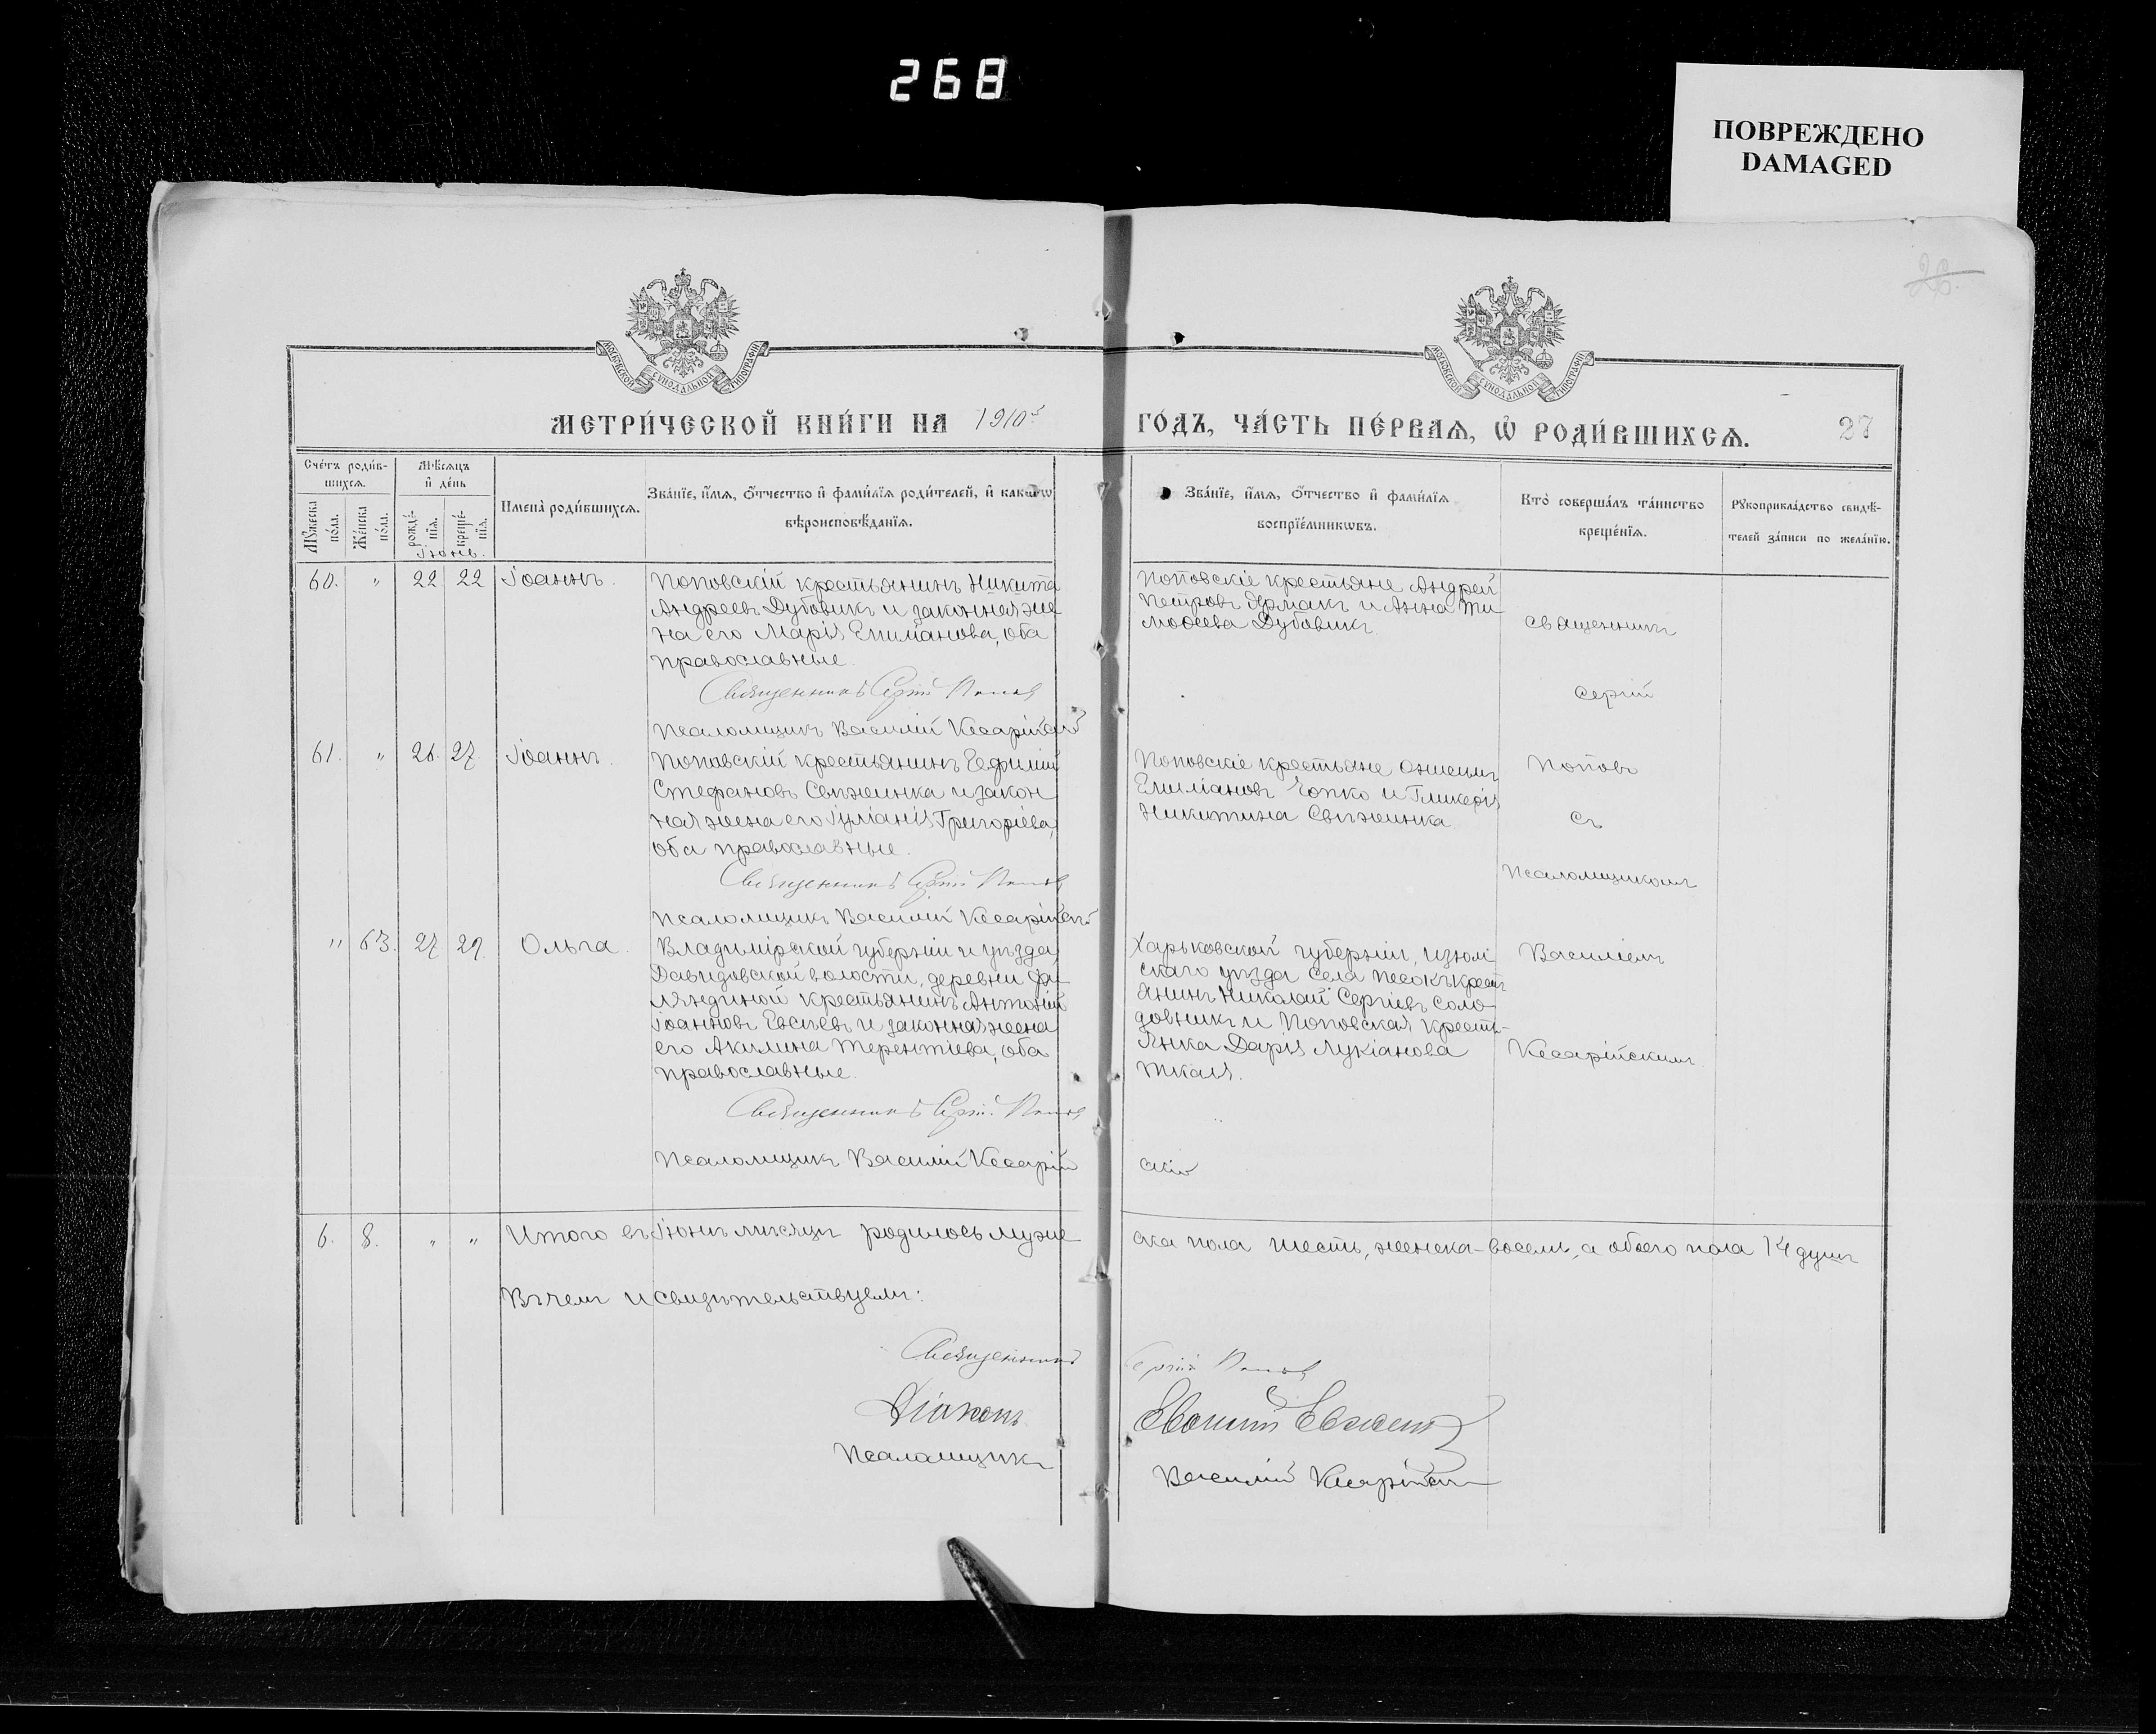 268
ПОВРЕЖДЕНО
DAMAGED
26.
МОСКОВСКОЙ СѴНОДАЛЬНОЙ ТИПОГРАФІИ
МОСКОВСКОЙ СѴНОДАЛЬНОЙ ТИПОГРАФІИ
МЕТРИ́ЧЕСКОЙ КНИ́ГИ НА 1910й
ГО́ДЪ, ЧА́СТЬ ПЕ́РВАѦ, Ѡ҆ РОДИ́ВШИХСѦ. 27
Сче́тъ роди́в-
шихсѧ.
Мꙋ́жеска по́ла.
Же́нска по́ла.
Мѣ́сѧцъ
и҆ де́нь
рожде́-
нїѧ.
креще́-
нїѧ.
Іюнь.
И҆мена̀ роди́вшихсѧ.
Зва́нїе, и҆́мѧ, ѻ҆́тчество и҆ фами́лїѧ роди́телей, и҆ како́гѡ
вѣроисповѣ́данїѧ.
Зва́нїе, и҆́мѧ, ѻ҆́тчество и҆ фами́лїѧ
воспрїе́мникѡвъ.
Кто̀ соверша́лъ та́инство
креще́нїѧ.
Рꙋкоприкла́дство свидѣ́-
телей за́писи по жела́нїю.
60. " 22 22 Іоаннъ.
Поповскій крестьянинъ Никита
Андреевъ Дубовикъ и законная же-
на его Марія Емиліанова, оба
православные.
Священникъ Сергій Поповъ
Псаломщикъ Василій Кесарійскій
Поповскіе крестьяне Андрей
Петровъ Ярмакъ и Анна Ти-
моѳеева Дубовикъ
61. " 26. 27. Іоаннъ.
Поповскій крестьянинъ Евфимій
Стефановъ Свѣжинка и закон
ная жена его Іуліанія Григоріева,
оба православные.
Священникъ Сергій Поповъ
Псаломщикъ Василій Кесарійскій
Поповскіе крестьяне
Емиліановъ и Гликерія
Никитина Свѣжинка
" 63. 27 29. Ольга.
Владимірской губерніи и уѣзда,
Давыдовской волости, деревни
крестьянинъ Антоній
Іоанновъ Евсѣевъ и законная жена
его Акилина Терентіева, оба
православные.
Священникъ Сергій Поповъ
Псаломщикъ Василій Кесарій
скій
Харьковской губерніи, Изюм
скаго уѣзда села Песокъ крест
янинъ Николай Сергіевъ Соло-
довникъ и Поповская крестъ-
янка Дарія Лукіанова
Ткаля.
Священникъ
Сергій
Поповъ
съ
Псаломщикомъ
Василіемъ
Кесарійскимъ.
6. 8. " " Итого въ Іюнѣ мѣсяцѣ родилось муже
ска пола шесть, женска-восемь, а обоего пола 14 душъ
Въ чемъ и свидѣтельствуемъ:
Священникъ Сергій Поповъ
Діаконъ
Псаломщикъ Василій Кесарійскій